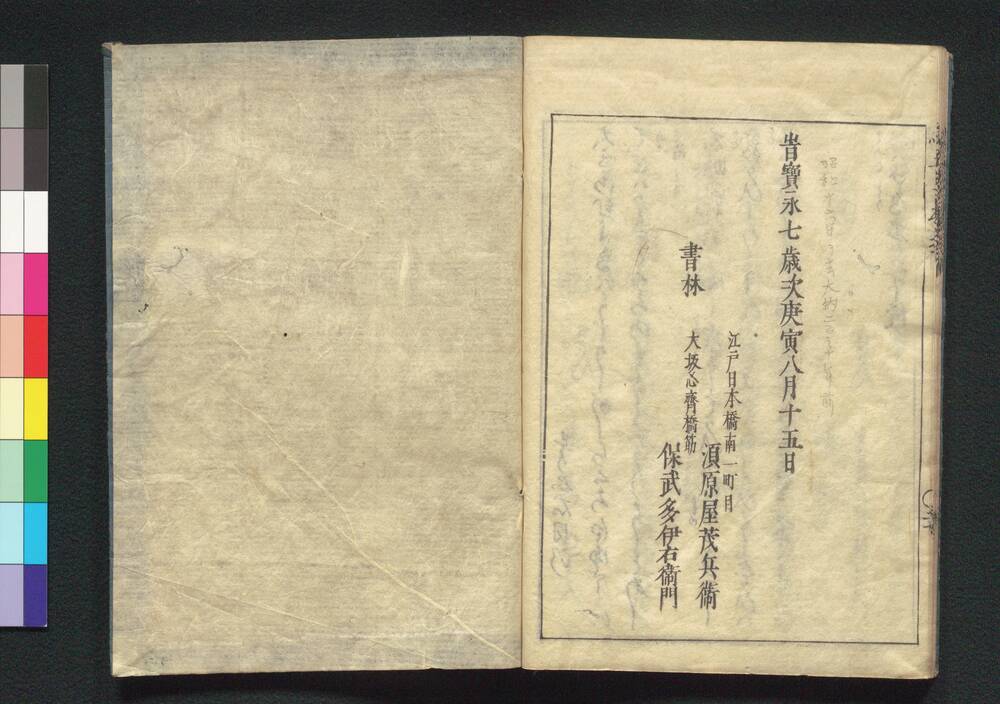 旹寳永七歳次庚寅八月十五日
書林
江戸日本橋南一町目
須原屋茂兵衛
大坂心齊橋筋
保武多伊右衞門